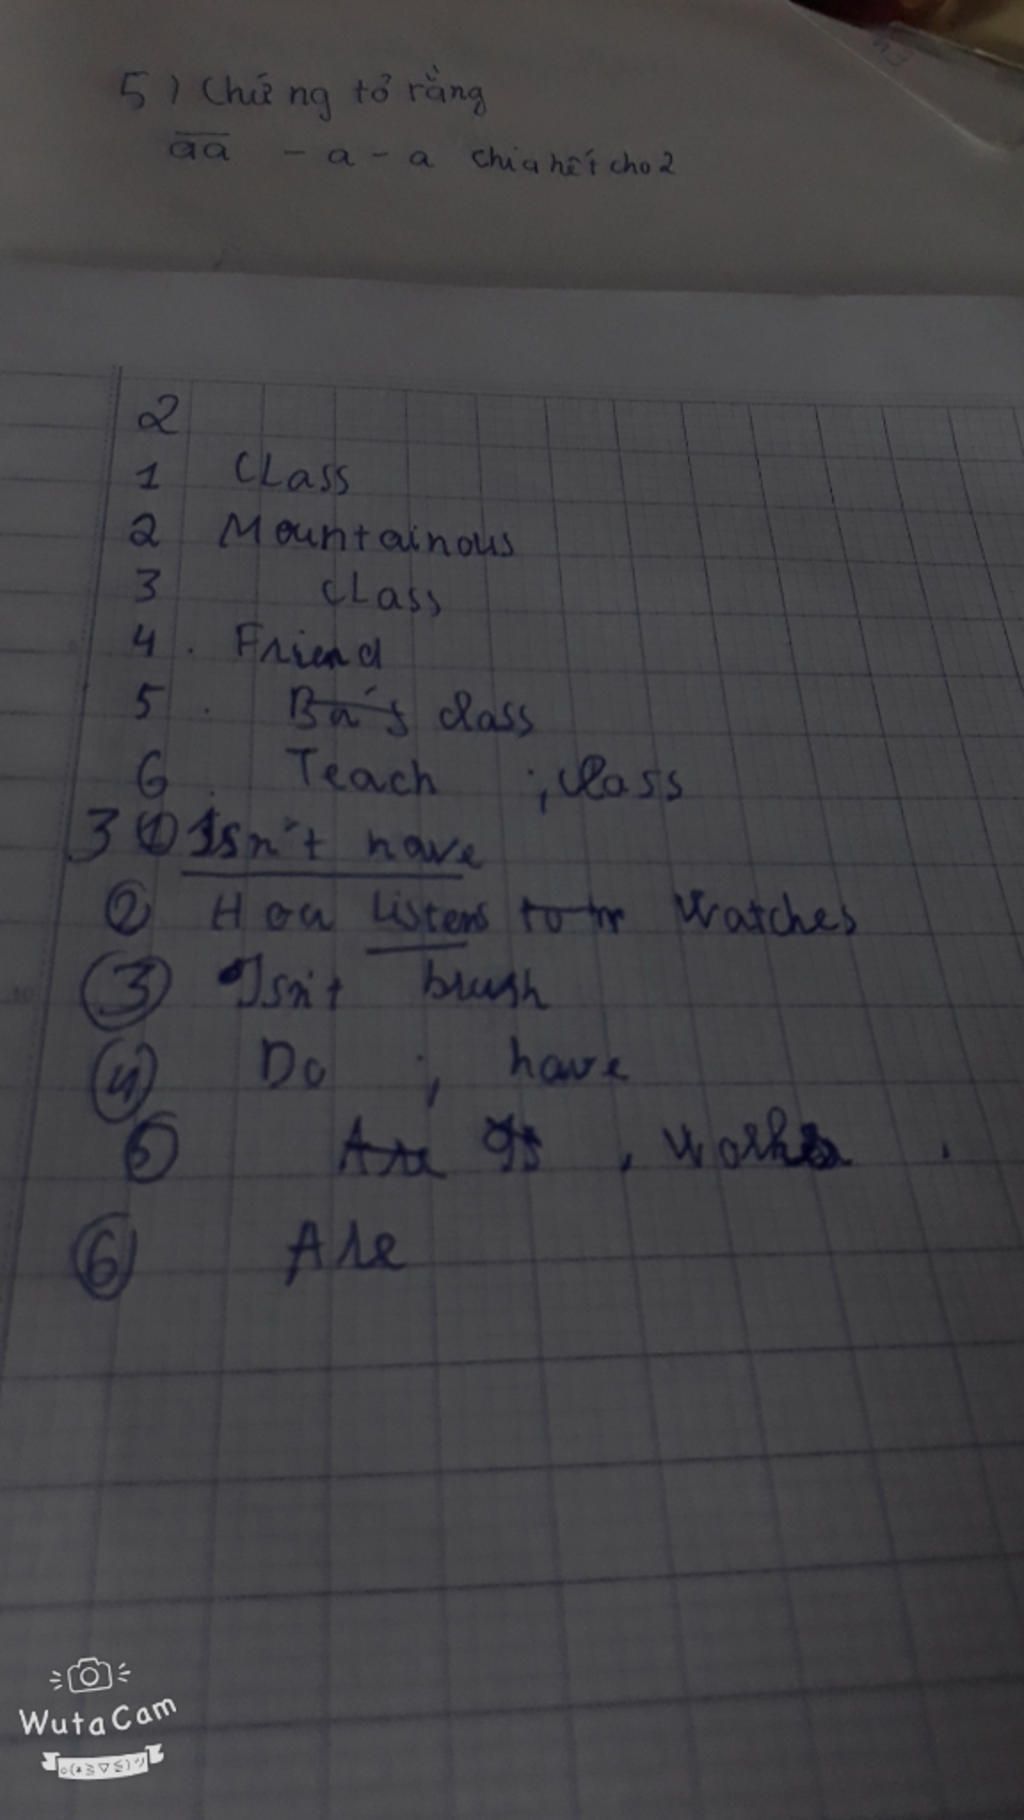 5) Chứng tỏ rằng
aa - a - a chia hết cho 2
2
1 Class
2 Mountainous
3 Class
4. Friend
5. Ba's class
6 Teach ; class
3 ① Isn't have
② Hoa listens to tr Watches
③ Isn't brush
④ Do ; have
⑤ Are Is , works .
⑥ Are
WutaCam